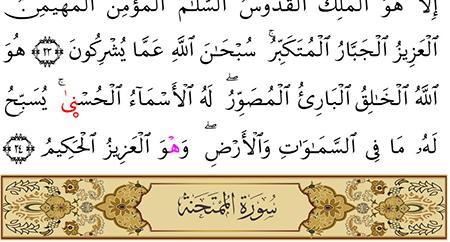 إِلَّا هُوَ ٱلْمَلِكُ ٱلْقُدُّوسُ ٱلسَّلَٰمُ ٱلْمُؤْمِنُ ٱلْمُهَيْمِنُ
ٱلْعَزِيزُ ٱلْجَبَّارُ ٱلْمُتَكَبِّرُۚ سُبْحَٰنَ ٱللَّهِ عَمَّا يُشْرِكُونَ ﴿٢٣﴾ هُوَ
ٱللَّهُ ٱلْخَٰلِقُ ٱلْبَارِئُ ٱلْمُصَوِّرُۖ لَهُ ٱلْأَسْمَآءُ ٱلْحُسْنىٰۚ يُسَبِّحُ
لَهُۥ مَا فِي ٱلسَّمَٰوَٰتِ وَٱلْأَرْضِۖ وَهْوَ ٱلْعَزِيزُ ٱلْحَكِيمُ ﴿٢٤﴾
سُورَةُ الْمُمْتَحَنَةِ